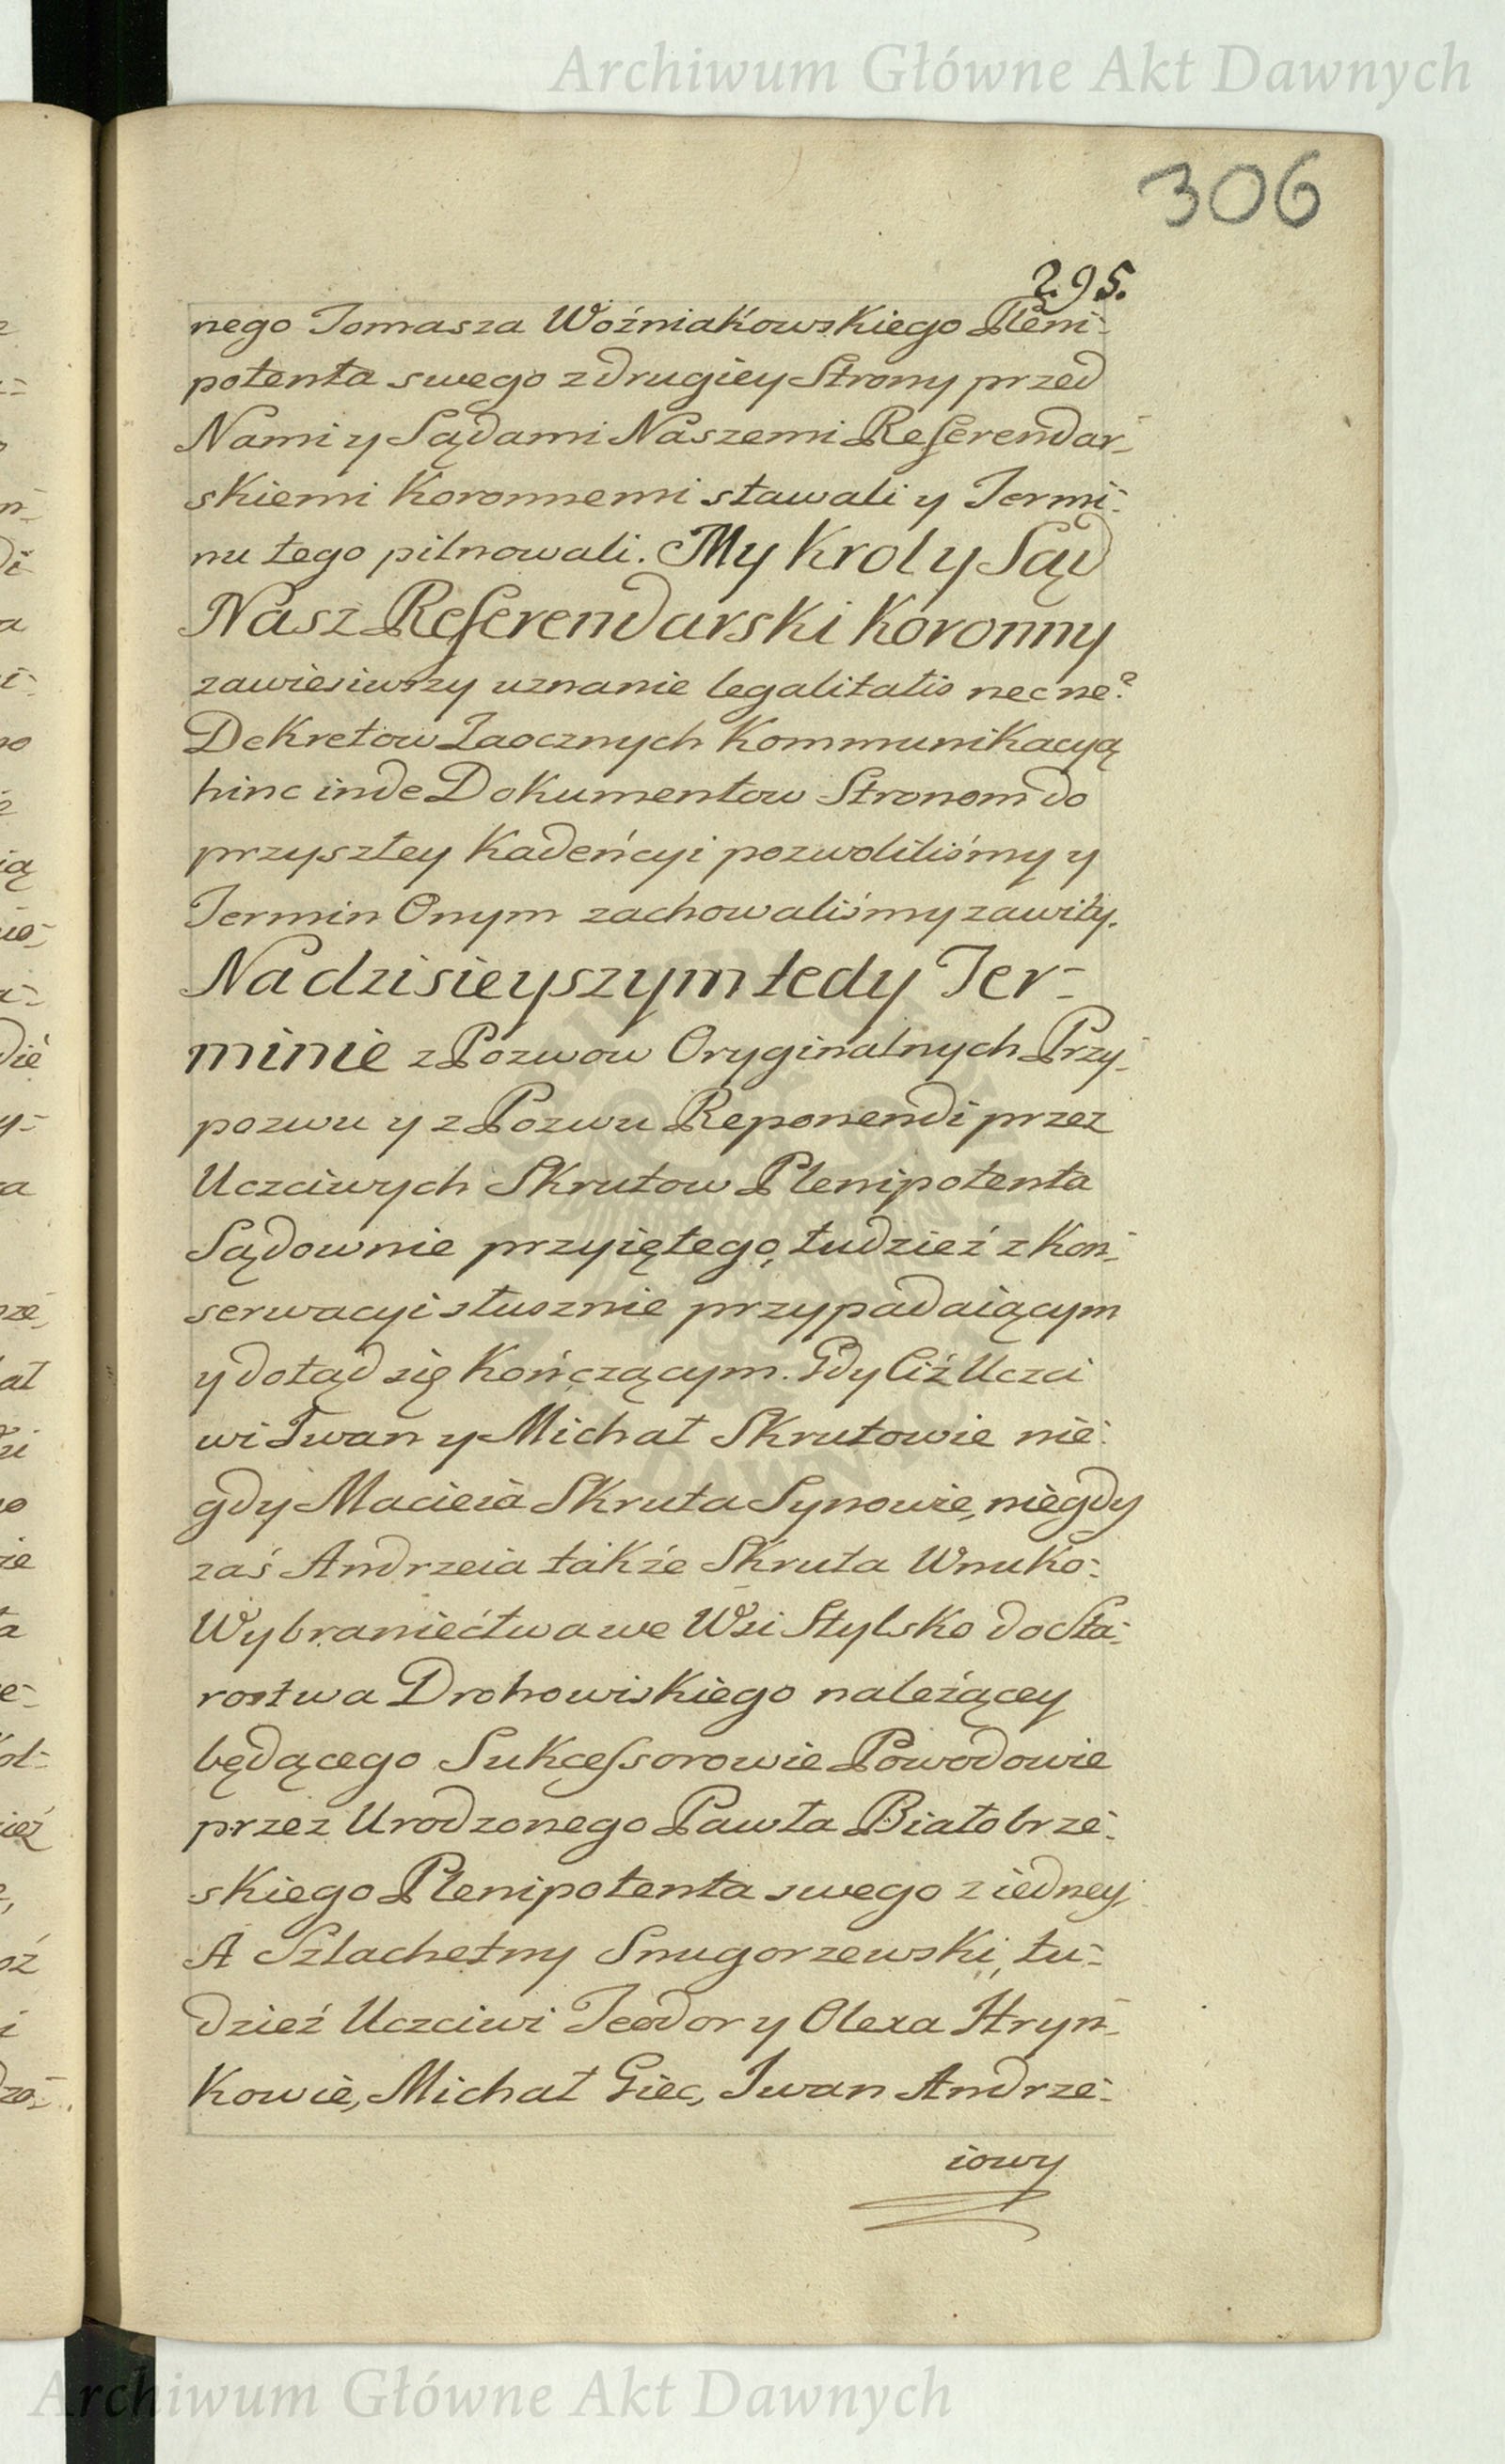 Archiwum Główne Akt Dawnych
306
295.
nego Tomasza Woźniakowskiego Pleni-
potenta swego z drugiey Strony przed
Nami y Sądami Naszemi Referendar-
skiemi Koronnemi stawali y Termi-
nu tego pilnowali. My Krol y Sąd
Nasz Referendarski Koronny
zawiesiwszy uznanie legalitatis nec ne?
Dekretow Zaocznych Kommunikacyą
hinc inde Dokumentow Stronom do
przyszłey Kadeńcyi pozwoliliśmy y
Termin Onym zachowaliśmy zawity.
Na dzisieyszym tedy Ter-
minie z Pozwow Oryginalnych Przy-
pozwu y z Pozwu Reponendi przez
Uczciwych Skrutow Plenipotenta
Sądownie przyiętego, tudzież z Kon-
serwacyi słusznie przypadaiącym
y dotąd się Kończącym. Gdy Ciż Uczci
wi Iwan y Michał Skrutowie nie-
gdy Macieia Skruta Synowie, niegdy
zaś Andrzeia także Skruta Wnuko-
Wybraniectwa we Wsi Stylsko do Sta-
rostwa Drohowiskiego należącey
będącego Sukcessorowie Powodowie
przez Urodzonego Pawła Białobrze-
skiego Plenipotenta swego z iedney,
A Szlachetny Snugorzewski, tu-
dzież Uczciwi Teodor y Olexa Hryn-
Kowie, Michał Giec, Iwan Andrze-
iowy
Archiwum Główne Akt Dawnych